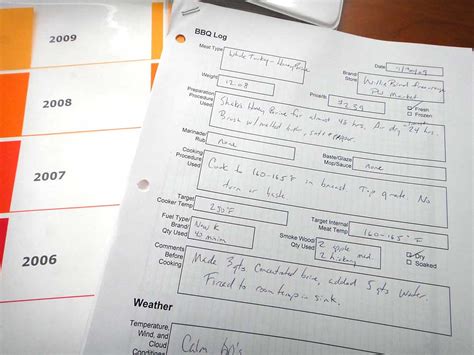 2009
2008
2007
2006
BBQ Log
Meat Type
Whole Turkey - Honey Brine
Date
Weight
12.08
Brand/
Store
Pop Market
Price/lb
$2.39
Fresh
Frozen
Preparation
Procedure
Used
Shake's Honey Brine for almost 48 hrs. Air dry 24 hrs.
Brush w/ melted butter, salt & pepper.
Marinade/
Rub
none
Baste/Glaze
Mop/Sauce
none
Cooking
Procedure
Used
Cook to 160-165°F in breast. Top grate. No
turn or baste
Target
Cooker Temp
Target Internal
Meat Temp
160-165°F
Fuel Type
Brand
Qty Used
Smoke Wood
Qty Used
2 apple med
2 hickory
Dry
Soaked
Comments
Before
Cooking
Made 3 qts. Concentrated brine, added 5 qts water.
to room temp in sink.
Weather
Temperature,
Wind, and
Cloud
Conditions
Calm 60's